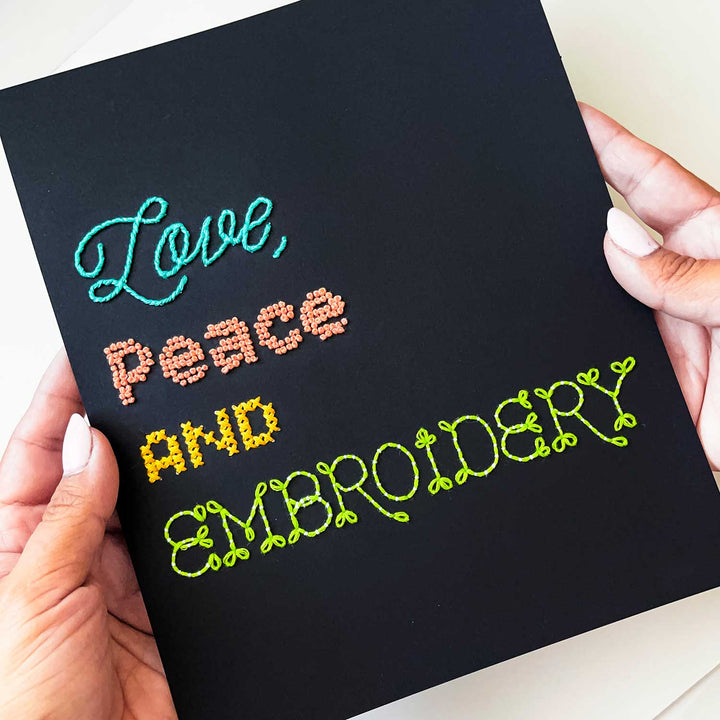 Love,
peace
AND
EMBROIDERY